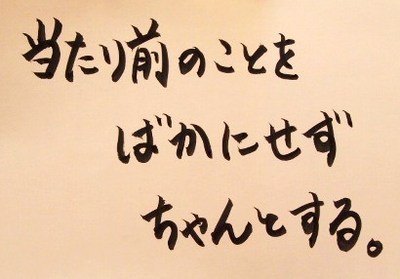 当たり前のことを
ばかにせず
ちゃんとする。